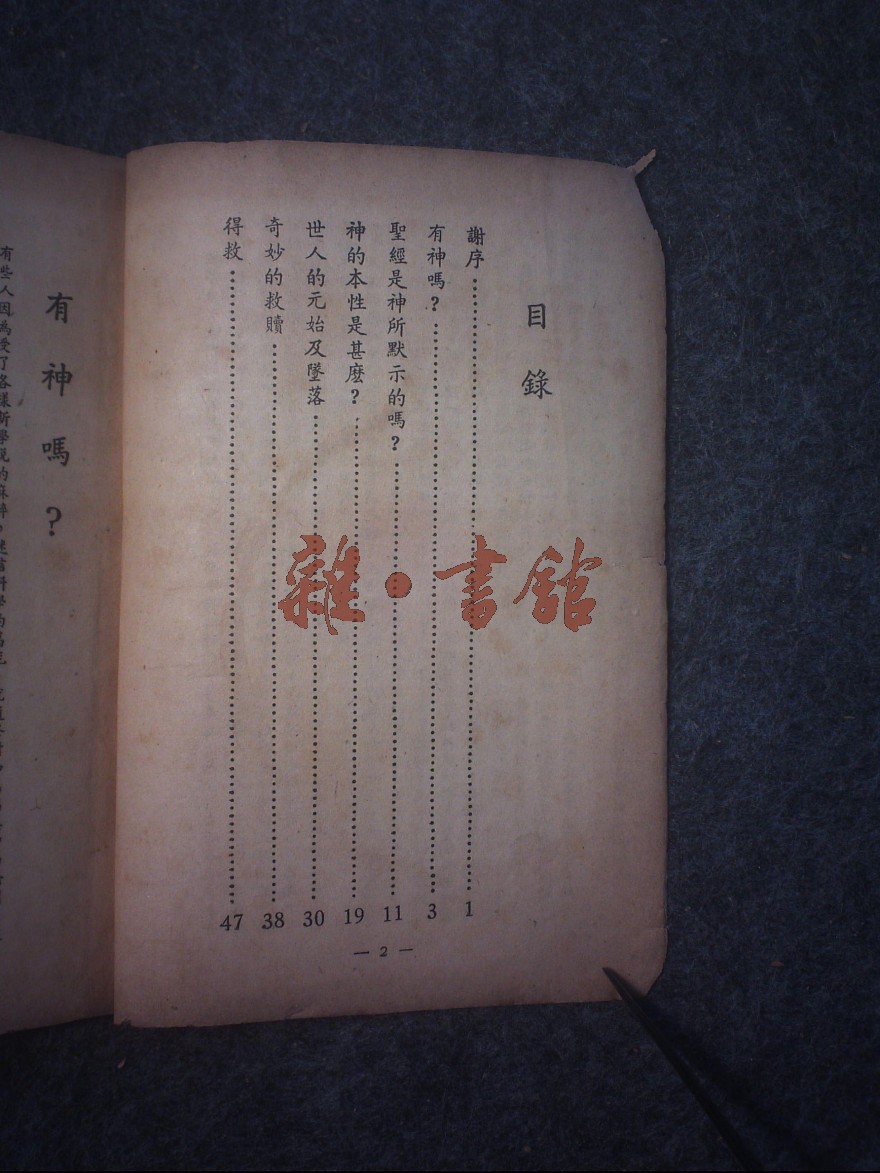 目錄
謝序……1
有神嗎？……3
聖經是神所默示的嗎？……11
神的本性是甚麽？……19
世人的元始及墜落……30
奇妙的救贖……38
得救……47
— 2 —
有神嗎？
有些人因為受了各樣新學說的麻醉，迷信科學的萬能
雜·書館